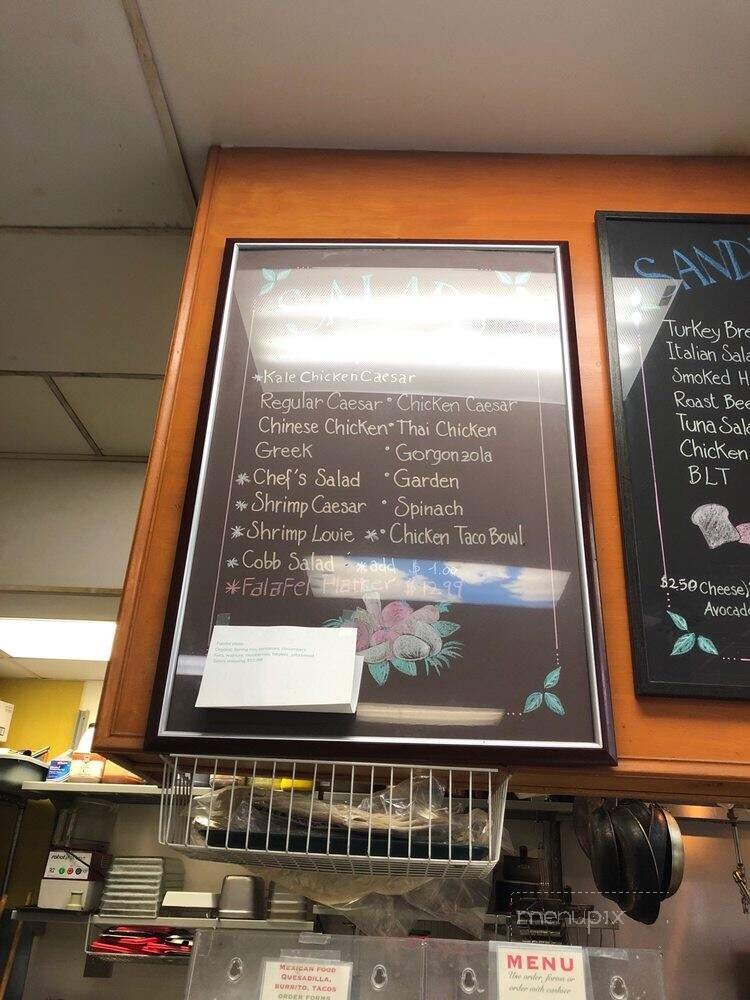 SALADS
*Kale Chicken Caesar
Regular Caesar • Chicken Caesar
Chinese Chicken • Thai Chicken
Greek • Gorgonzola
*Chef's Salad • Garden
*Shrimp Caesar • Spinach
*Shrimp Louie *• Chicken Taco Bowl
*Cobb Salad • *add $1.00
*FalaFel Platter $12.99
SAND
Turkey Bre
Italian Sala
Smoked H
Roast Bee
Tuna Sala
Chicken
BLT
$2.50 Cheese/
Avocado
MEXICAN FOOD
QUESADILLA,
BURRITO, TACOS
ORDER FORMS
MENU
Use order forms or
order with cashier
menupix